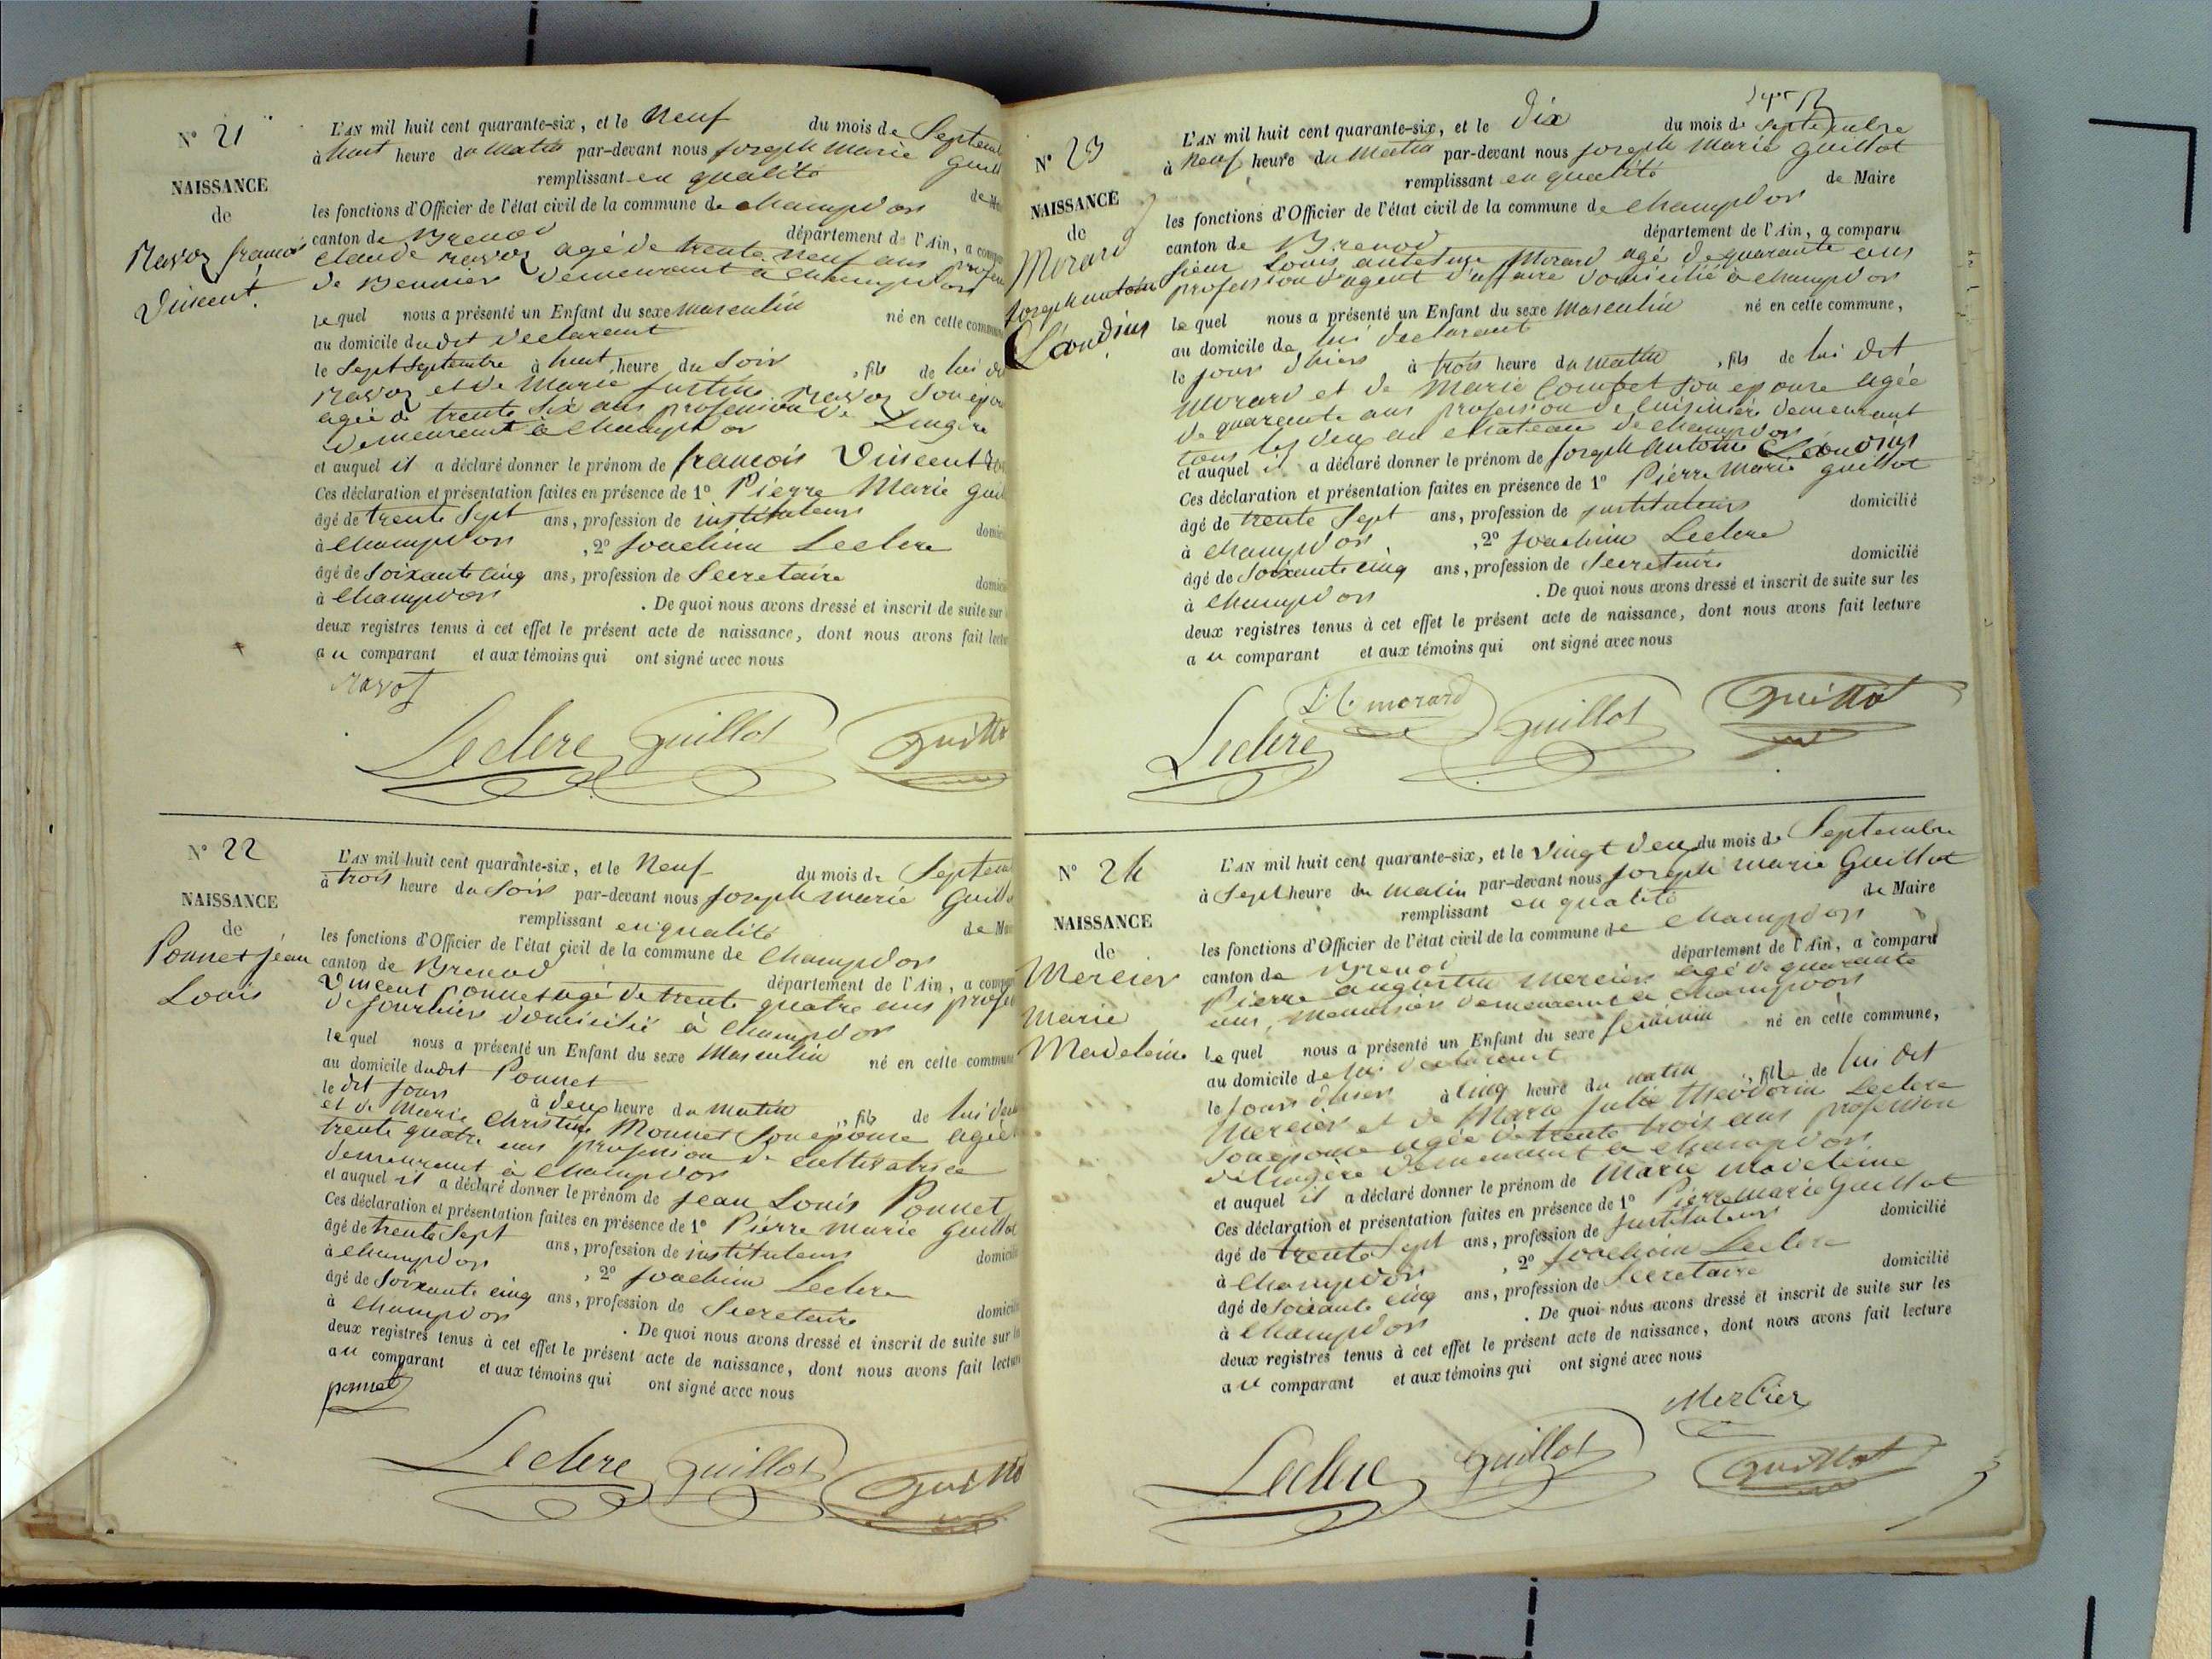 N° 21
NAISSANCE
de
Ravoz françois
Vincent.
L'AN mil huit cent quarante-six, et le Neuf du mois de Septem
à huit heure du Matin par-devant nous Joseph Marie Guill
remplissant en qualité de M
les fonctions d'Officier de l'état civil de la commune de Champdor
canton de Brenod département de l'Ain, a comp
Claude ravoz agé de trente neuf ans profes
de demeurant a Champdor
lequel nous a présenté un Enfant du sexe masculin né en cette commun
au domicile dudit déclarant
le Sept Septembre à huit heure du Soir, fils de lui dit
Ravoz et de Marie Justine Ravoz Son épou
agée de trente Six ans profession de Lingère
demeurant à Champdor
et auquel il a déclaré donner le prénom de françois Vincent
Ces déclaration et présentation faites en présence de 1° Pierre Marie Guil
âgé de trente Sept ans, profession de instituteur domici
à Champdor, 2° Joachim Leclerc
âgé de Soixante cinq ans, profession de Secretaire domici
à Champdor. De quoi nous avons dressé et inscrit de suite sur
deux registres tenus à cet effet le présent acte de naissance, dont nous avons fait lectu
au comparant et aux témoins qui ont signé avec nous
Ravoz
Leclerc Guillot Guillo
N° 22
NAISSANCE
de
Ponnet Jean
Louis
L'AN mil huit cent quarante-six, et le Neuf du mois de Septem
à trois heure du Soir par-devant nous Joseph Marie Guillo
remplissant en qualité de Mai
les fonctions d'Officier de l'état civil de la commune de Champdor
canton de Brenod département de l'Ain, a compa
Vincent Ponnet agé de trente quatre ans profes
de domicilié à Champdor
lequel nous a présenté un Enfant du sexe Masculin né en cette commun
au domicile dudit Ponnet
le dit Jour à deux heure du Matin, fils de lui
et de Marie Christine Monnet Son epouse agée
trente quatre ans profession de Cultivatrice
demeurant à Champdor
et auquel il a déclaré donner le prénom de Jean Louis Ponnet
Ces déclaration et présentation faites en présence de 1° Pierre Marie Guillot
âgé de trente Sept ans, profession de instituteur domicili
à Champdor, 2° Joachim Leclerc
âgé de Soixante cinq ans, profession de Secretaire domicili
à Champdor. De quoi nous avons dressé et inscrit de suite sur l
deux registres tenus à cet effet le présent acte de naissance, dont nous avons fait lectur
au comparant et aux témoins qui ont signé avec nous
ponnet
Leclerc Guillot Guillo
N° 23
NAISSANCE
de
Morard
Joseph antoine
Léandius
L'AN mil huit cent quarante-six, et le Dix du mois de Septembre
à Neuf heure du Matin par-devant nous Joseph Marie Guillot
remplissant en qualité de Maire
les fonctions d'Officier de l'état civil de la commune de Champdor
canton de Brenod département de l'Ain, a comparu
Sieur Louis Morard agé de quarante ans
profession d'agent d'affaire domicilié à Champdor
lequel nous a présenté un Enfant du sexe Masculin né en cette commune,
au domicile de lui declarant
le jour d'hier à trois heure du matin, fils de lui dit
Morard et de Marie Combet Son epouse agée
de quarante ans profession de Cuisinière demeurant
tous les deux au Chateau de Champdor
et auquel il a déclaré donner le prénom de Joseph Antoine Léandius
Ces déclaration et présentation faites en présence de 1° Pierre Marie Guillot
âgé de trente Sept ans, profession de instituteur domicilié
à Champdor, 2° Joachim Leclerc
âgé de Soixante cinq ans, profession de Secretaire domicilié
à Champdor. De quoi nous avons dressé et inscrit de suite sur les
deux registres tenus à cet effet le présent acte de naissance, dont nous avons fait lecture
au comparant et aux témoins qui ont signé avec nous
morard
Leclerc Guillot Guillot
N° 24
NAISSANCE
de
Mercier
Marie
Madeleine
L'AN mil huit cent quarante-six, et le Vingt deux du mois de Septembre
à Sept heure du Matin par-devant nous Joseph Marie Guillot
remplissant en qualité de Maire
les fonctions d'Officier de l'état civil de la commune de Champdor
canton de Brenod département de l'Ain, a comparu
Pierre augustin Mercier agé de quarante
ans, Menuisier demeurant a Champdor
lequel nous a présenté un Enfant du sexe feminin né en cette commune,
au domicile de lui declarant
le Jour d'hier à Cinq heure du matin, fille de lui dit
Mercier et de Marie Julie Theodorin Leclerc
Son epouse agée de trente trois ans profession
de lingère demeurant a Champdor
et auquel il a déclaré donner le prénom de Marie Madeleine
Ces déclaration et présentation faites en présence de 1° Pierre Marie Guillot
âgé de trente Sept ans, profession de instituteur domicilié
à Champdor, 2° Joachim Leclerc
âgé de Soixante cinq ans, profession de Secretaire domicilié
à Champdor. De quoi nous avons dressé et inscrit de suite sur les
deux registres tenus à cet effet le présent acte de naissance, dont nous avons fait lecture
au comparant et aux témoins qui ont signé avec nous
Mercier
Leclerc Guillot Guillot